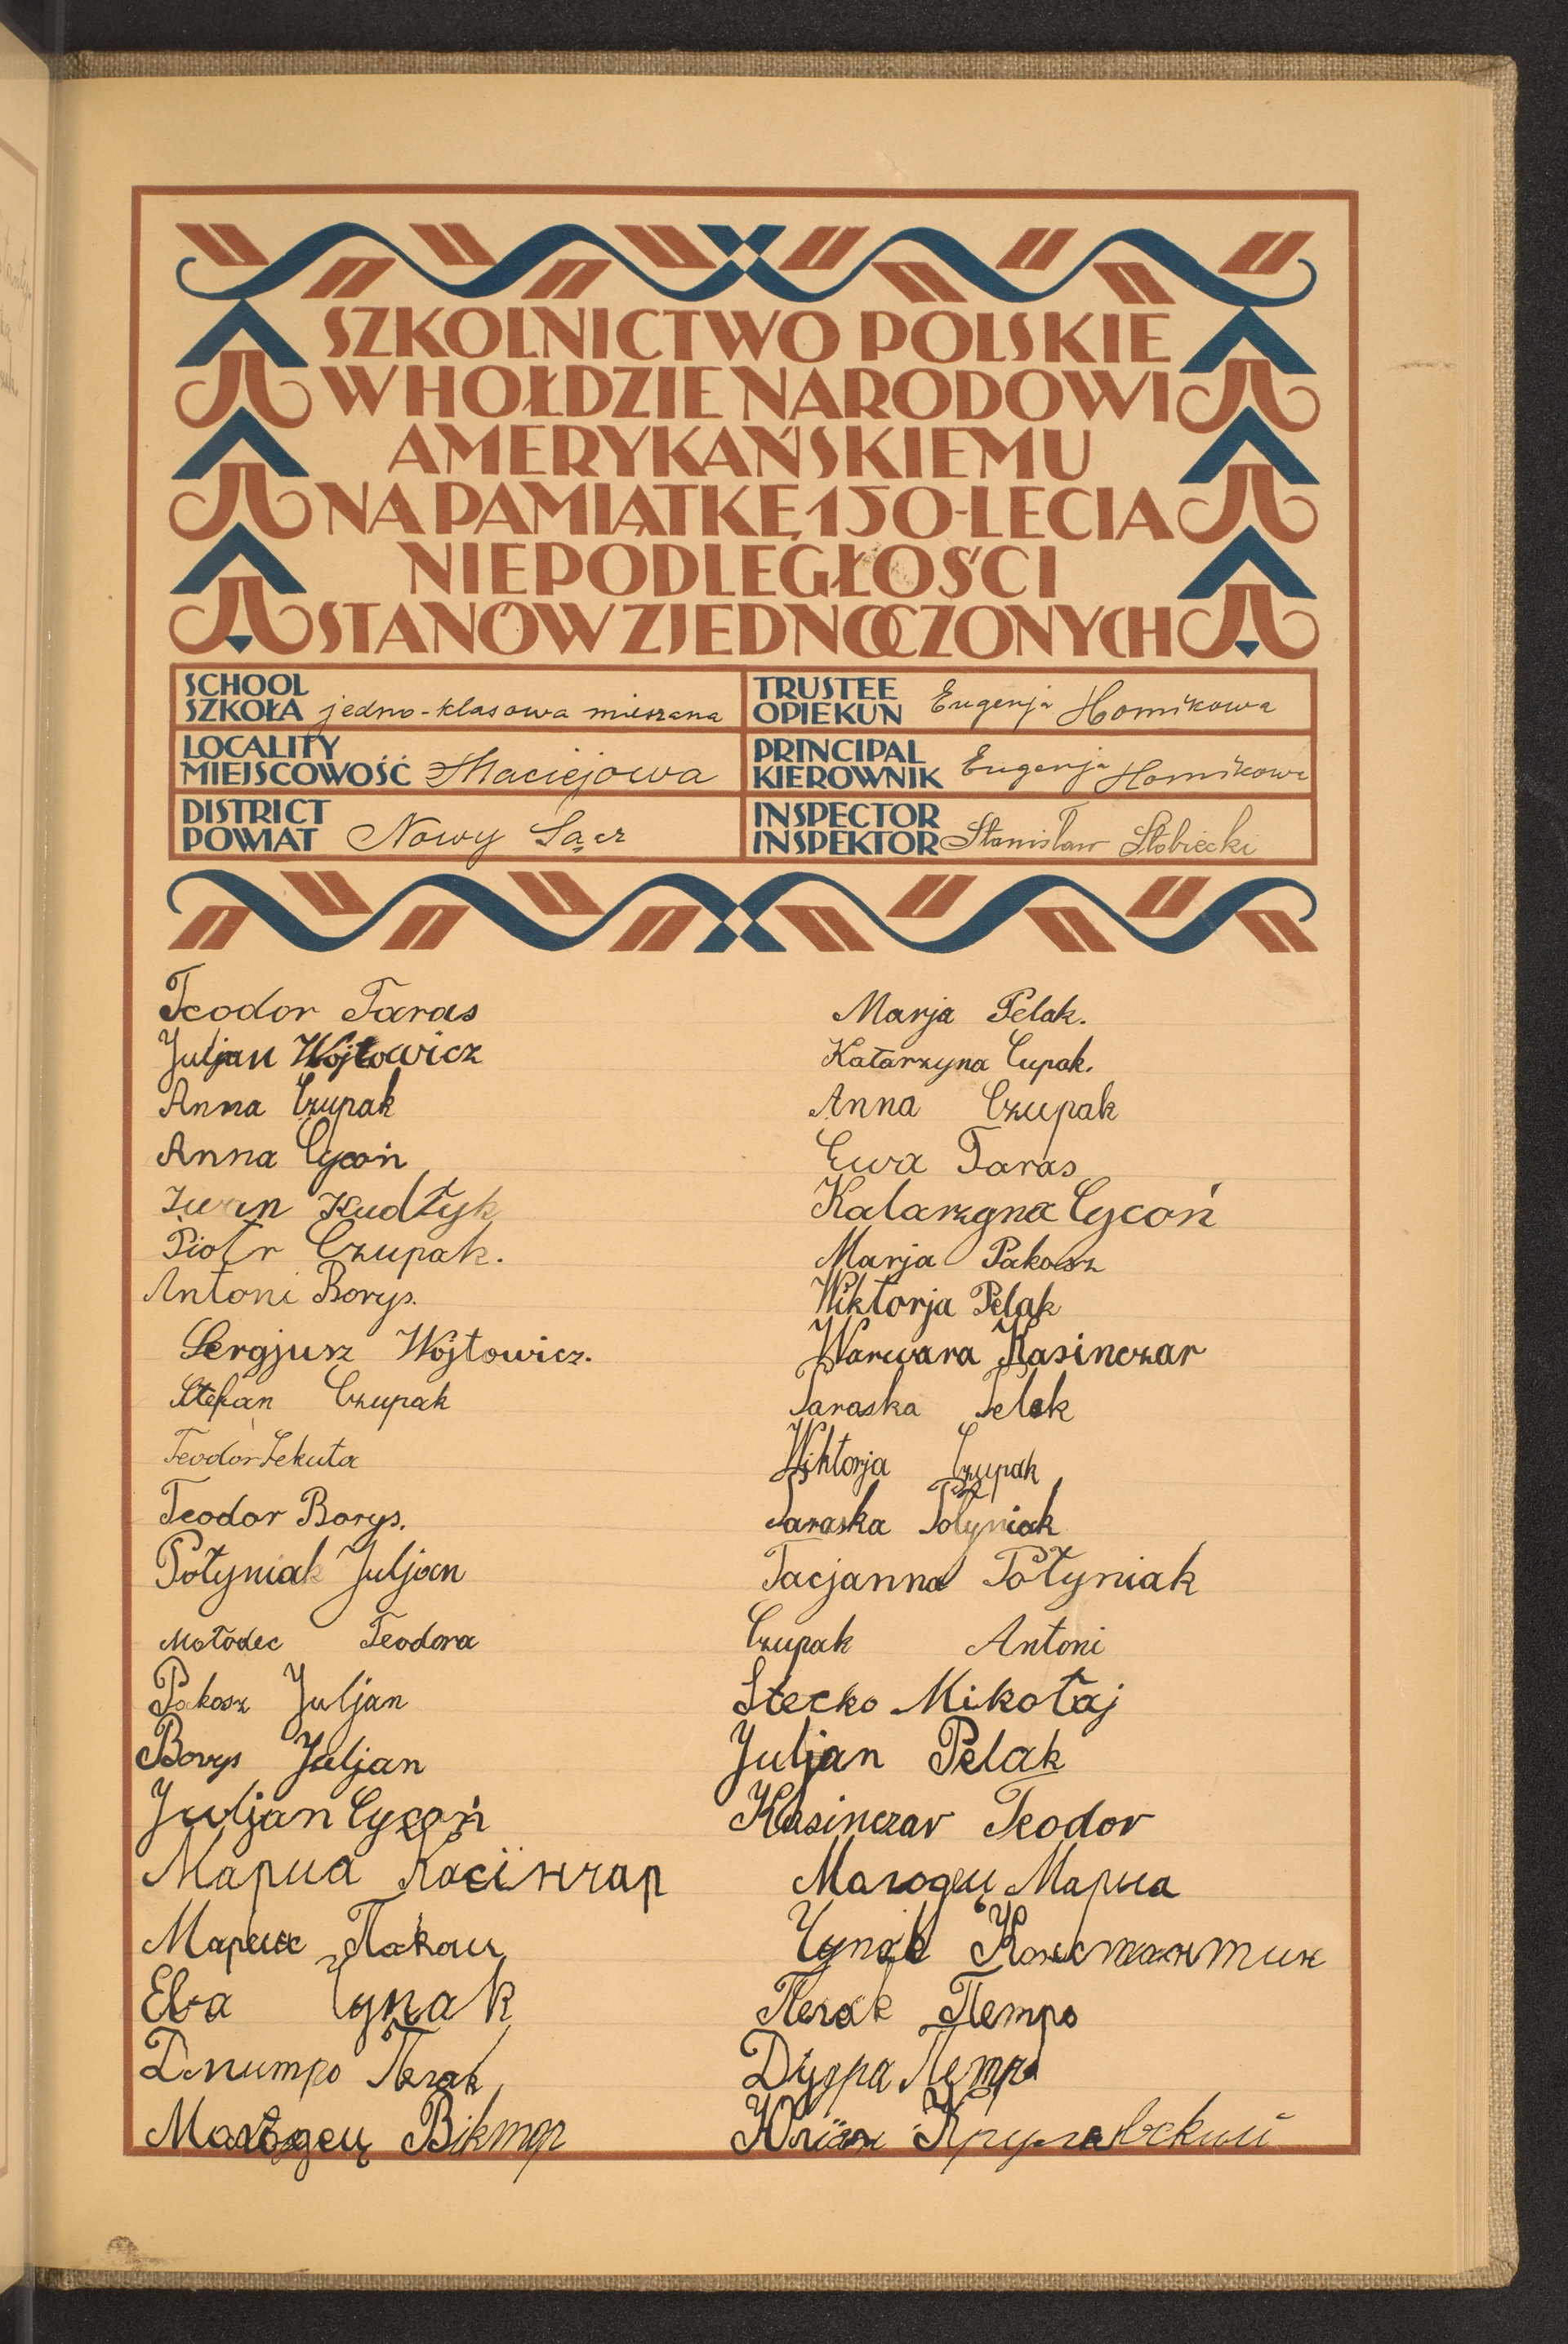 SZKOLNICTWO POLSKIE
W HOŁDZIE NARODOWI
AMERYKAŃSKIEMU
NA PAMIĄTKĘ 150-LECIA
NIEPODLEGŁOŚCI
STANÓW ZJEDNOCZONYCH
SCHOOL
SZKOŁA jedno-klasowa mieszana
TRUSTEE
OPIEKUN Eugenja Homikowa
LOCALITY
MIEJSCOWOŚĆ Maciejowa
PRINCIPAL
KIEROWNIK Eugenja Homikowa
DISTRICT
POWIAT Nowy Sącz
INSPECTOR
INSPEKTOR Stanisław Słobiecki
Teodor Taras
Juljan Wojtowicz
Anna Czupak
Anna Cycoń
Iwan Kudłyk
Piotr Czupak.
Antoni Borys.
Sergjusz Wojtowicz.
Stefan Czupak
Teodor Sekuła
Teodor Borys.
Połyniak Juljan
Mołodec Teodora
Pakosz Juljan
Borys Juljan
Juljan Cycoń
Мариа Касїнчар
Мариа Пакош
Ева Цупак
Дмитро Пелак
Молодец Віктор
Marja Pelak.
Katarzyna Cupak.
Anna Czupak
Ewa Taras
Katarzyna Cycoń
Marja Pakosz
Wiktorja Pelak
Warwara Kasinczar
Paraska Pelak
Wiktorja Czupak
Paraska Połyniak
Tacjanna Połyniak
Czupak Antoni
Stecko Mikołaj
Juljan Pelak
Kasinczar Teodor
Молодец Мариа
Чупак Константин
Пелак Петро
Дзюра Петро
Юліан